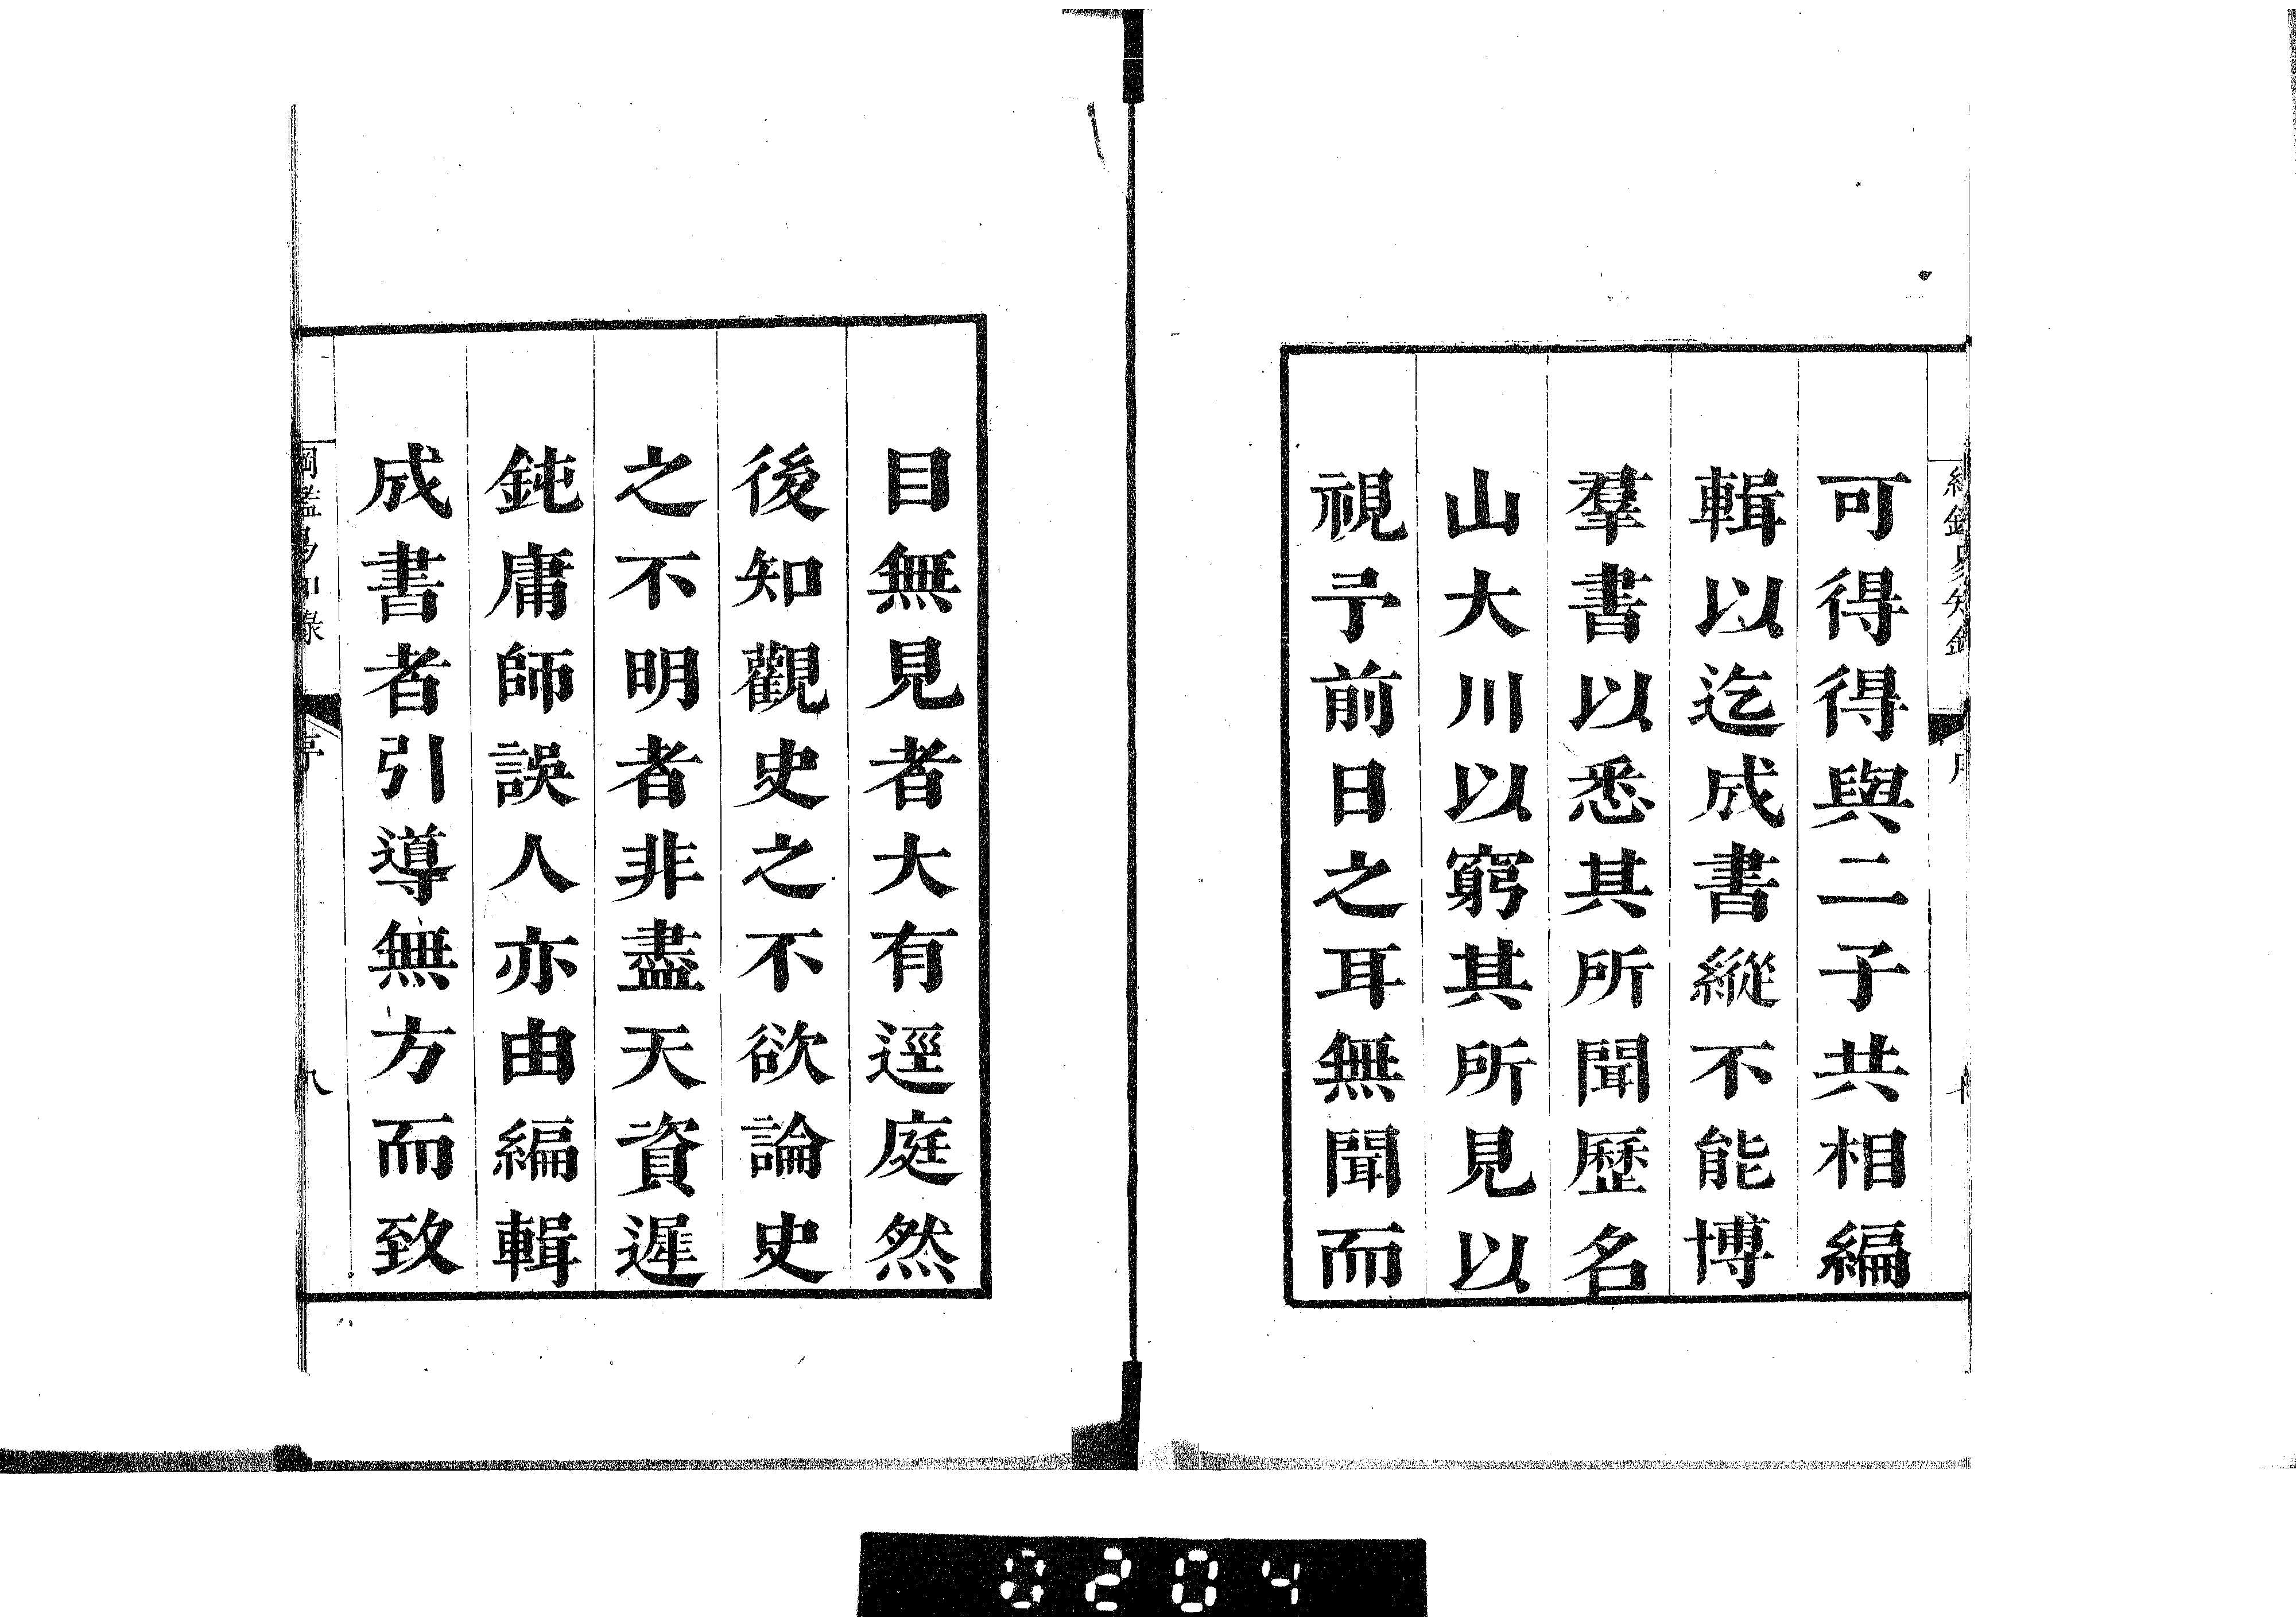 可得得與二子共相編
輯以迄成書縱不能博
羣書以悉其所聞歷名
山大川以窮其所見以
視予前日之耳無聞而
目無見者大有逕庭然
後知觀史之不欲論史
之不明者非盡天資遲
鈍庸師誤人亦由編輯
成書者引導無方而致
綱鑑易知錄
序
八
0204